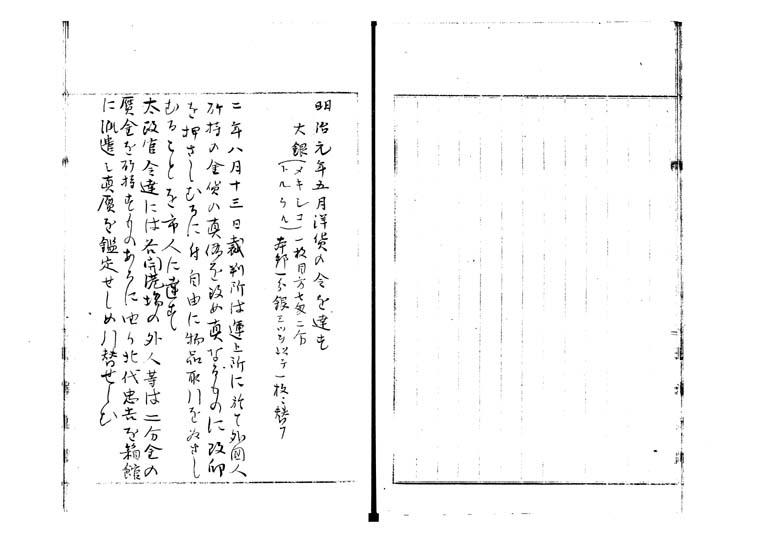 明治元年五月洋貨の令を達す
大銀(メキシコ
ドルラル)一枚目方七匁二分
本邦一分銀三ツヲ以テ一枚ニ替フ
二年八月十三日裁判所は運上所に於て外国人
所持の金貨の真偽を改め真なるものに改印
を押さしむるに付自由に物品取引を為さし
むることを市人に達す
太政官令達には各開港場の外人等は二分金の
贋金を所持するものあるに由り北代忠吉を箱館
に派遣し真贋を鑑定せしめ引替せしむ